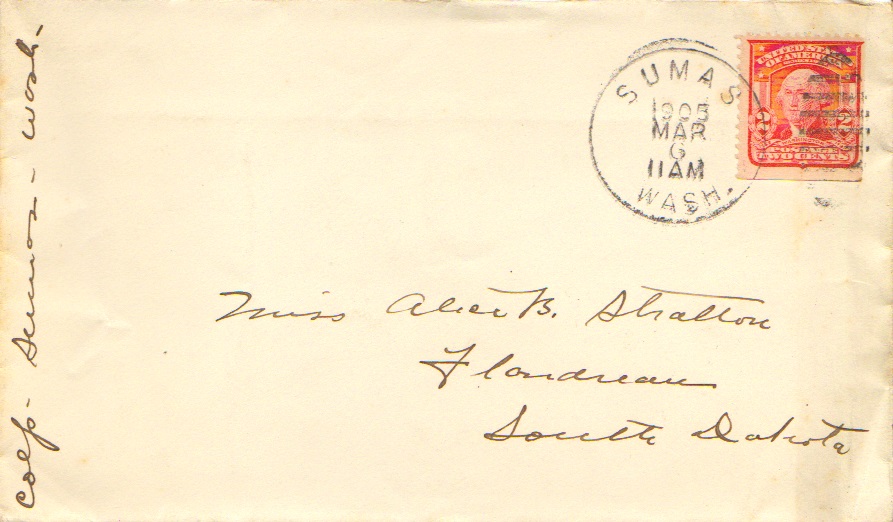 SUMAS
1905
MAR
6
11 AM
WASH.
UNITED STATES
OF AMERICA
2 2
POSTAGE
TWO CENTS
Miss Alice B. Stratton
Flandreau
South Dakota
Sumas - Wash -